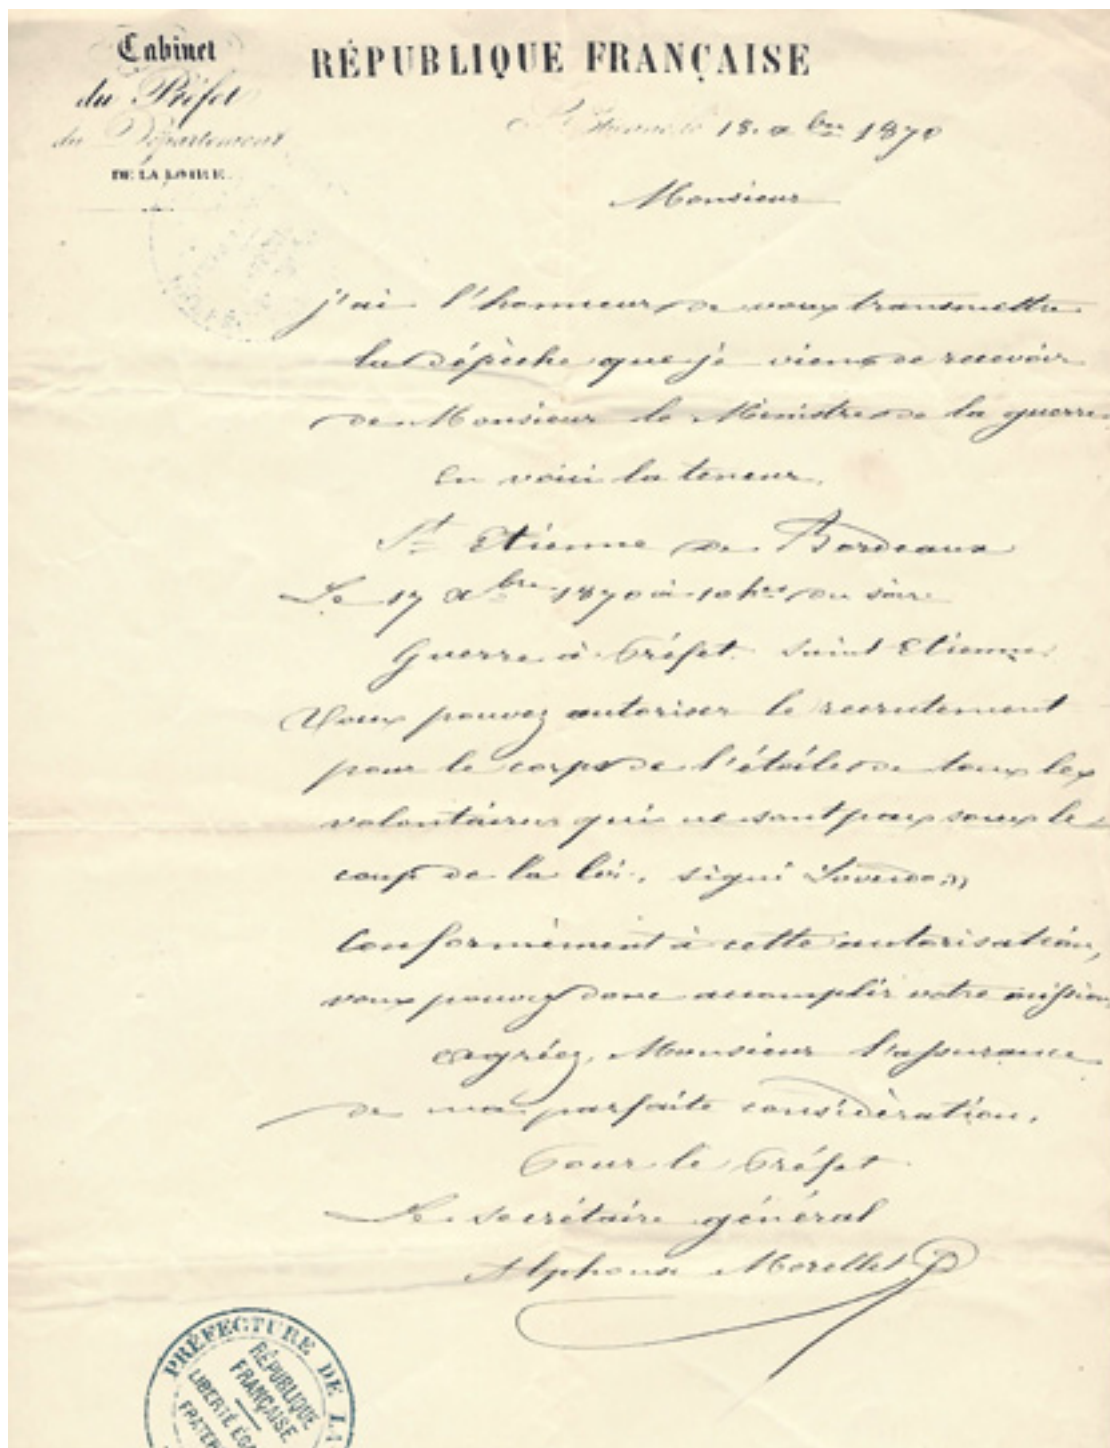 Cabinet
du Préfet
du Département
DE LA LOIRE
RÉPUBLIQUE FRANÇAISE
St Etienne, le 18. Xbre 1870
Monsieur
j'ai l'honneur de vous transmettre
la dépèche que je viens de recevoir
de Monsieur le Ministre de la guerre
en voici la teneur.
St Etienne de Bordeaux
Le 17 Xbre 1870 à 10 hres du soir
Guerre à Préfet. Saint Etienne.
Vous pouvez autoriser le recrutement
pour le corps de l'étoile de tous les
volontaires qui ne sont pas sous le
coup de la loi. signé
Conformément à cette autorisation,
vous pouvez donc accomplir votre mission
agréez, Monsieur l'assurance
de ma parfaite considération.
Pour le Préfet
Le secrétaire général
Alphonse Morellet
PRÉFECTURE DE LA
RÉPUBLIQUE
FRANÇAISE
LIBERTÉ ÉGA
FRATER